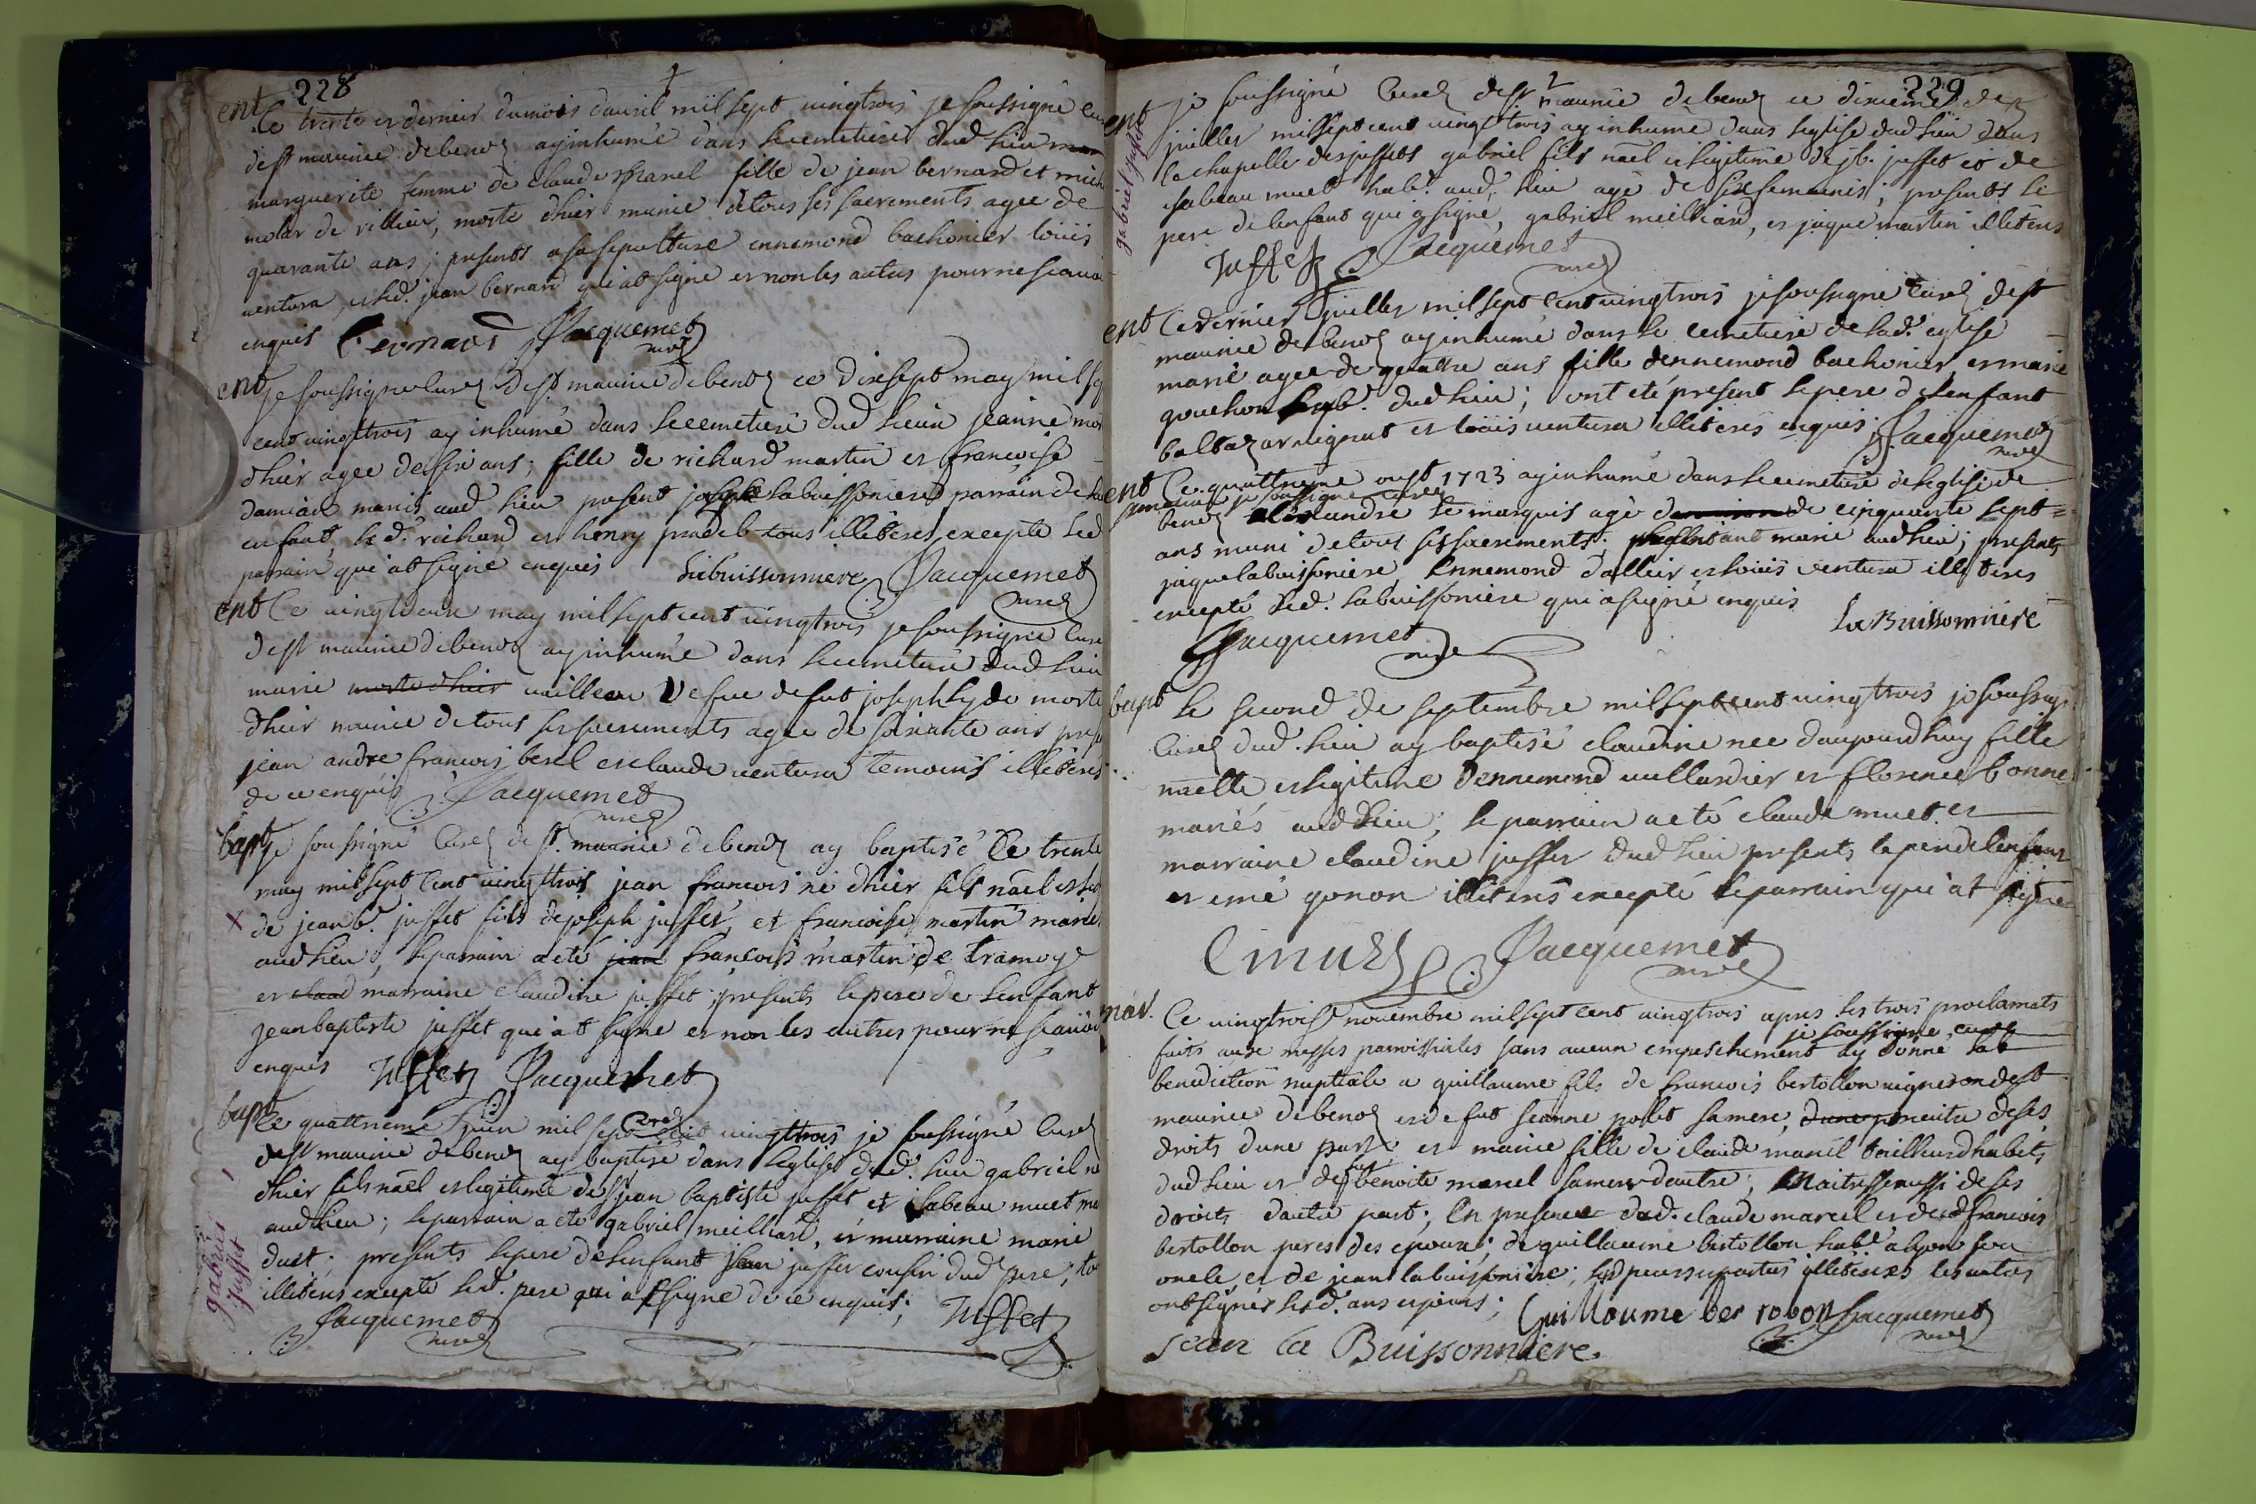 228
ent Ce trente et dernier du mois d'avril mil sept vingtrois je soussigné cu
de st maurice de benoz ay inhumé dans le cemetiere dud lieu
marguerite femme de claude manel fille de jean bernard et
molar de rillieu, morte d'hier munie de tous ses sacrements agee de
quarante ans; presents a sa sepulture ennemond bachonier loüis
ventura, et led. jean bernard qui at signé et non les autres pour ne scavoir
enquis Bernard Jacquemet
curé
ent Je soussigné curé de st. maurice de benoz ce dixsept may mil sep
cent vingttrois ay inhumé dans le cemetiere dud lieu jeanne mor
d'hier agee de six ans; fille de richard martin et francoise
damian mariés aud lieu present joseph labuissoniere parrain de
enfant, led. richard et henry pradel tous illiteres, excepte led
parrain qui at signé enquis Labuissonniere Jacquemet
curé
ent Ce vingtdeux may mil sept cent vingtrois je soussigné curé
de st maurice de benoz ay inhumé dans le cemetiere dud lieu
marie morte d'hier vefve de fut joseph morte
d'hier munie de tous ses sacrements agee de soixante ans pres
jean andre francois berel et claude ventura temoins illiteres
de ce enquis Jacquemet
curé
bapt Je soussigné curé de st. maurice de benoz ay baptisé Ce trente
may mil sept cent vingttrois jean francois né d'hier fils nãel et leg
x de jean b. juffet fils de joseph juffet, et francoise martin marié
aud lieu, le parrain a eté jean francois martin de tramoye
et claud marraine claudine juffet; presents le pere de l'enfant
jean baptiste juffet qui at signé et non les autres pour ne scavoir
enquis Juffet Jacquemet
curé
bapt Ce quattrieme juin mil sept cent vingttrois je soussigné curé
de st maurice de benoz ay baptisé dans l'eglise dud. lieu gabriel né
d'hier fils nãel et legitime de jean baptiste juffet et isabeau muet ma
aud lieu; le parrain a eté gabriel meilliard, et marraine marie
duet; presents le pere de l'enfant jean juffet cousin dud pere, to
illiteres excepté led. pere qui a signé de ce enquis; Juffet
Jacquemet
curé
gabriel
juffet
229
ent je soussigné curé de st maurice de benoz ce dixieme de
juillet mil sept cent vingt trois ay inhumé dans l'eglise dud lieu dans
la chapelle des juffets gabriel fils nãel et legitime de jb. juffet et de
isabeau muet hab. aud. lieu agé de six semaines; presents le
pere de l'enfant qui a signé, gabriel meilliard, et jaque martin illiteres
Juffet Jacquemet
curé
gabriel juffet
ent Ce dernier juillet mil sept cent vingtrois je soussigné curé de st
maurice de benoz ay inhumé dans le cemetiere de lad. eglise
marie agee de quattre ans fille d'ennemond bachonier, et marie
gouchon hab. dud lieu; ont eté present le pere de l'enfant
baltazar mignat et loüis ventura illiteres enquis Jacquemet
curé
ent Ce quattrieme oust 1723 ay inhumé dans le cemetiere de l'eglise de
st maurice je soussigné curé
benoz alexandre le marquis agé de cinquante sept
ans muni de tous ses sacrements; marié aud lieu; presents
jaque labuissoniere, Ennemond dallier et loüis ventura illiteres
excepté led. labuissoniere qui a signé enquis
La Buissonniere
Jacquemet
curé
bapt le second de septembre mil sept cent vingttrois je soussigné
curé dud. lieu ay baptisé claudine nee d'aujourdhuy fille
nãelle et legitime d'ennemond vullardier et florence bonne
mariés aud lieu; le parrain a eté claude muet et
marraine claudine juffet dud lieu presents le pere de l'enfant
et emé gonon illiteres excepté le parrain qui at signé
C muet Jacquemet
curé
mar. Ce vingtroise novembre mil sept cent vingtrois apres les trois proclamats
faits aux messes paroissiales sans aucun empeschement je soussigné curé ay donné la
benediction nuptiale a guillaume fils de francois bertollon vigneron de st
maurice de benoz et de fut jeanne polet sa mere, de ses
droits d'une part et marie fille de claude manel tailleur d'habits
dud lieu et de benoite manel sa mere d'autre; Maitresse aussi de ses
droits d'autre part; En presence dud. claude marcel et dud francois
bertollon peres des epoux; de guillaume bertollon hab. a lyon son
oncle, et de jean labuissoniere; illiteres les autres
ont signés lesd. ans et jours; Guillaume ber tolon Jacquemet
curé
Jean la Buissonniere